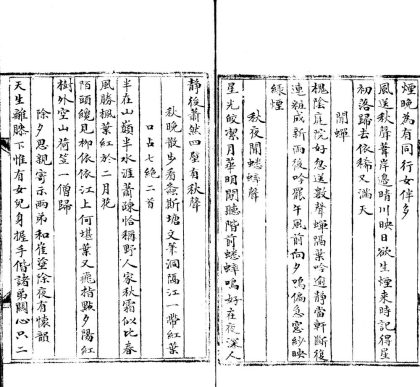 煙晚為有同行女伴多
風送秋聲葦岸邊晴川映日欲生煙來時記得星
初落歸去依稀又滿天
聞蟬
槐陰庭院好忽送數聲蟬隔葉吟逾靜當軒斷復
連組成新雨後吟罷午風前向夕鳴偏急窗紗映
綠煙
秋夜聞蟋蟀聲
星光皎潔月華明閒聽階前蟋蟀鳴好在夜深人
靜後蕭然四壁有秋聲
秋晚散步看螽斯塘文筆洞隔江一帶紅葉
口占七絕二首
半在山巔半水涯蕭疎恰稱野人家秋霜似比春
風勝楓葉紅於二月花
陌頭纔見柳依依江上何堪葉又飛指點夕陽紅
樹外空山荷笠一僧歸
除夕思親寄示兩弟和崔塗除夜有懷韻
天生離膝下惟有女兒身握手偕諸弟關心只二